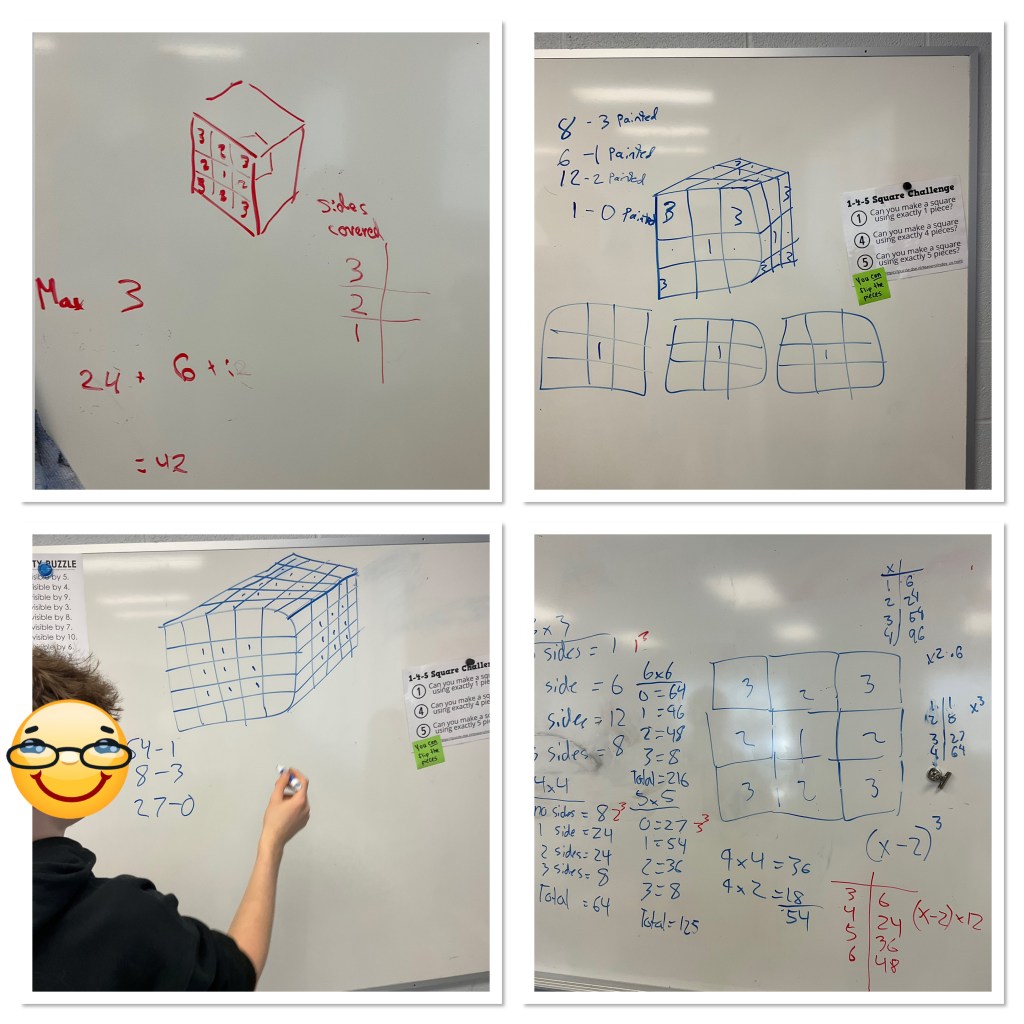 3 2 3
2 1 2
3 2 3
sides
covered
3
2
1
Max 3
24 + 6 + 12
= 42
8 - 3 Painted
6 - 1 Painted
12 - 2 Painted
1 - 0 Painted
3 3
1 1
3 3 2
3
1
1
1
1-4-5 Square Challenge
1 Can you make a square
using exactly 1 piece?
4 Can you make a square
using exactly 4 pieces?
5 Can you make a square
using exactly 5 pieces?
You can
flip the
pieces
TY PUZZLE
by 5.
visible by 4.
visible by 9.
visible by 3.
visible by 8.
visible by 7.
visible by 10.
visible by 6.
1 1 1
1 1 1
1 1 1
54-1
8-3
27-0
1-4-5 Square Challe
1 Can you make a sq
using exactly 1 pie
4 Can you make a s
using exactly 4 pie
5 Can you make a s
using exactly 5 p
You can
flip the
pieces
x 3
sides = 1 1³
side = 6
sides = 12
sides = 8
4x4
no sides = 8 2³
1 side = 24
2 sides = 24
3 sides = 8
Total = 64
6x6
0=64
1=96
2=48
3=8
Total=216
5x5
0=27 3³
1=54
2=36
3=8
Total=125
3 2 3
2 1 2
3 2 3
4x4=36
4x2=18
54
x
1 6
2 24
3 54
4 96
x2·6
1 1
2 8
3 27
4 64
x³
(x-2)³
3 6
4 24
5 36
6 48
(x-2)x12